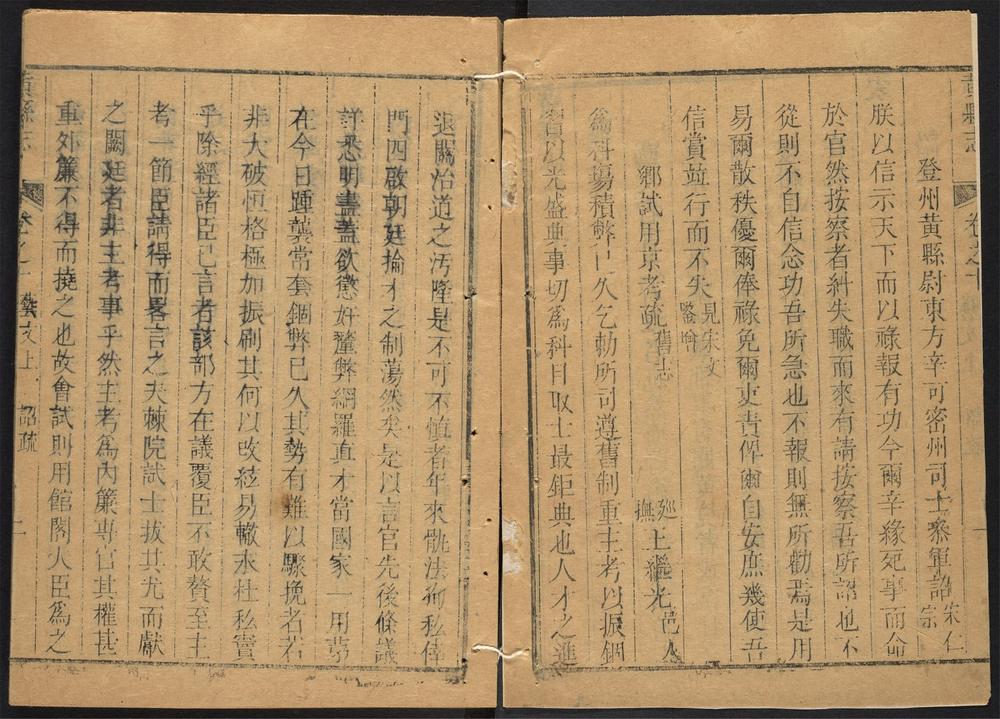 黃縣志
卷之十
登州黃縣尉東方辛可密州司士叅軍詔 宋仁宗
朕以信示天下而以祿報有功今爾辛緣死事而命
於官然按察者糾失職而來有請按察吾所詔也不
從則不自信念功吾所急也不報則無所勸焉是用
易爾散秩優爾俸祿免爾吏責俾爾自安庶幾使吾
信賞竝行而不失 見宋文鑒
鄉試用京考疏 舊志
撫 王繼光 邑人
為科場積弊已久乞勅所司遵舊制重主考以振錮
習以光盛典事切為科目取士最鉅典也人才之進
退關治道之汚隆是不可不慎者年來骩法狥私倖
門四啟朝廷掄才之制蕩然矣是以言官先後條議
詳悉明盡蓋欲懲奸釐弊網羅真才當國家一用第
在今日踵襲常套錮弊已久其勢有難以驟挽者若
非大破恒格極加振刷其何以改絃易轍永杜私竇
乎除經諸臣已言者該部方在議覆臣不敢贅至主
考一節臣請得而畧言之夫棘院試士拔其尤而獻
之闕廷者非主考事乎然主考為內簾專官其權甚
重外簾不得而撓之也故會試則用館閣大臣為之
黃縣志
卷之十 藝文上 詔疏